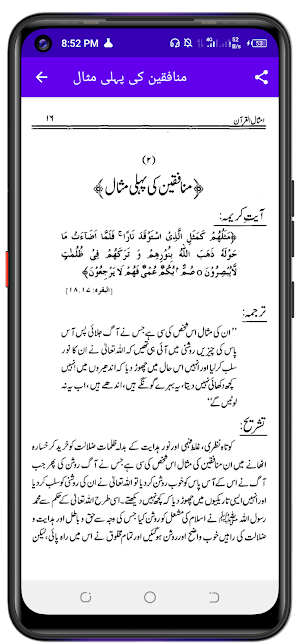 8:52 PM
4G
52
B/s
53
منافقین کی پہلی مثال
امثال القرآن
۱۶
(۲)
﴿منافقین کی پہلی مثال﴾
آیت کریمہ:
﴿مَثَلُهُمْ كَمَثَلِ الَّذِى اسْتَوْقَدَ نَارًا ۚ فَلَمَّآ اَضَآءَتْ مَا
حَوْلَهٗ ذَهَبَ اللّٰهُ بِنُوْرِهِمْ وَ تَرَكَهُمْ فِىْ ظُلُمٰتٍ
لَّايُبْصِرُوْنَ o صُمٌّ ۢ بُكْمٌ عُمْىٌ فَهُمْ لَا يَرْجِعُوْنَ﴾
[البقرہ: ۱۷، ۱۸]
ترجمہ:
”ان کی مثال اس شخص کی سی ہے جس نے آگ جلائی پس آس
پاس کی چیزیں روشنی میں آئی ہی تھیں کہ اللہ تعالیٰ نے ان کا نور
سلب کر لیا اور انہیں اس حال میں چھوڑ دیا کہ اندھیروں میں انہیں
کچھ دکھائی نہیں دیتا، یہ بہرے گونگے ہیں، اندھے ہیں، اب یہ نہ
لوٹیں گے“
تشریح:
کوتاہ نظری، غلط فہمی اور نور ہدایت کے بدلہ ظلمات ضلالت کو خرید کر خسارہ
اٹھانے میں ان منافقین کی مثال اس شخص کی سی ہے جس نے آگ روشن کی پھر جب
آگ نے اس کے آس پاس کو خوب روشن کر دیا تو اللہ تعالیٰ نے ان کی روشنی کو سلب کر دیا
اور انہیں ایسی تاریکیوں میں چھوڑ دیا کہ کچھ نہیں دیکھتے۔ اسی طرح اللہ تعالیٰ کے حکم سے محمد
رسول اللہ ﷺ نے اسلام کی مشعل کو روشن کیا جس کی وجہ سے حق و باطل اور ہدایت و
ضلالت کی راہیں خوب واضح اور روشن ہو گئیں اور تمام مخلوق نے اس میں راہ پائی، لیکن